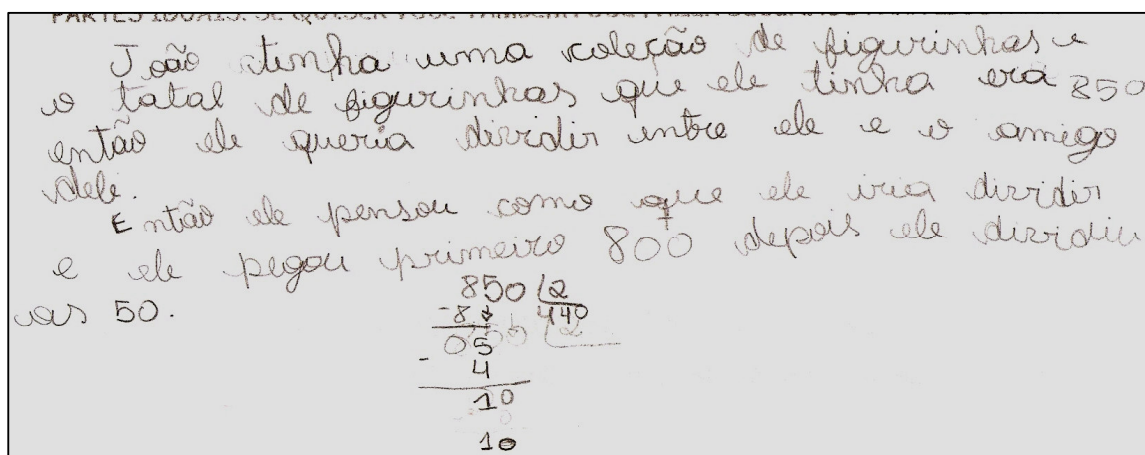 João tinha uma coleção de figurinhas e
o tatal de figurinhas que ele tinha era 850
então ele queria dividir entre ele e o amigo
dele.
Então ele pensou como que ele iria dividir
e ele pegou primeiro 800 depois ele dividiu
os 50.
850 2
-8 440
05
- 4
10
10